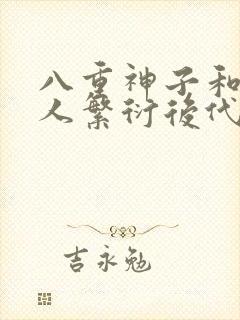 八重神子和
人繁衍後代
吉永勉